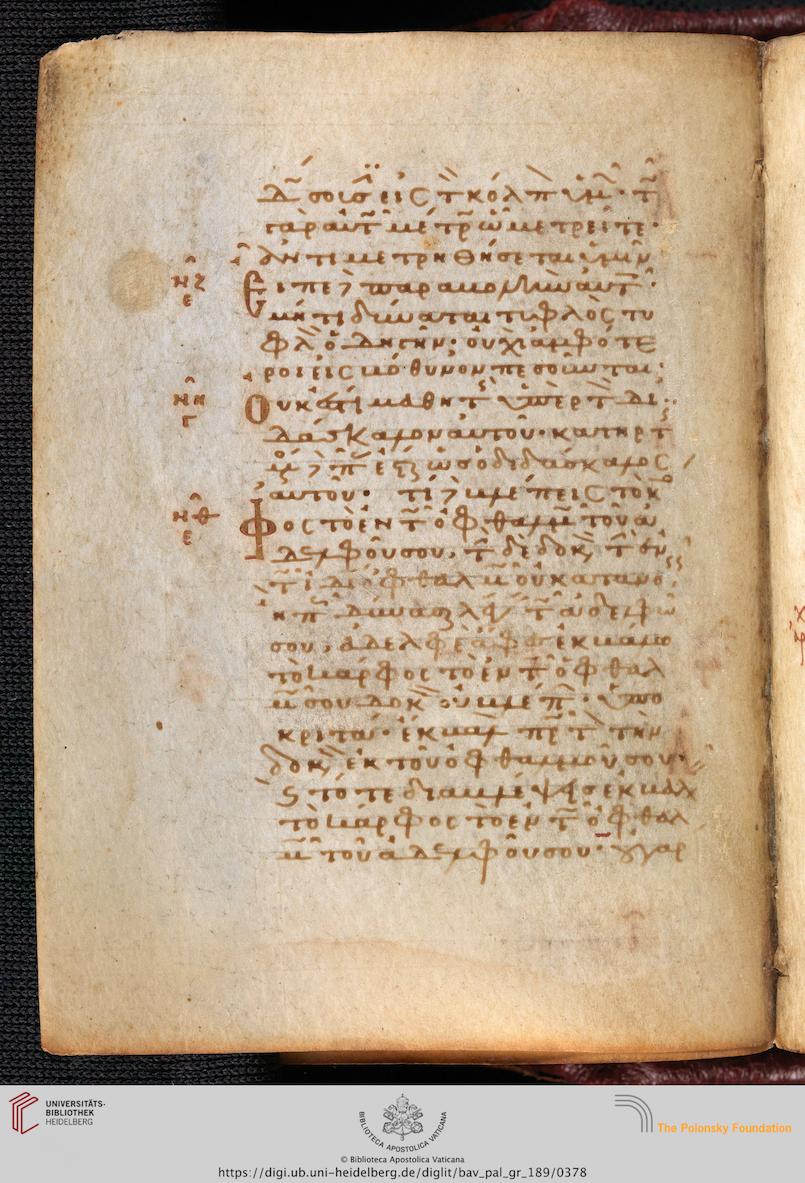 δῶσουσιν εἰς τὸν κόλπον ὑμῶν· τῷ
γὰρ αὐτῷ μέτρῳ ᾧ μετρεῖτε·
ἀντιμετρηθήσεται ὑμῖν
νζ
ε
Εἶπε δὲ παραβολὴν αὐτοῖς·
μήτι δύναται τυφλὸς τυ
φλὸν ὁδηγεῖν· οὐχὶ ἀμφότε
ροι εἰς βόθυνον πεσοῦνται·
νη
γ
Οὐκ ἔστι μαθητὴς ὑπὲρ τὸν δι
δάσκαλον αὐτοῦ· κατηρτι
αὐτοῦ· τί δὲ βλέπεις τὸ κάρ
νθ
ε
φος τὸ ἐν τῷ ὀφθαλμῷ τοῦ ἀ
δελφοῦ σου, τὴν δὲ δοκὸν τὴν ἐν
τῷ ἰδίῳ ὀφθαλμῷ οὐ κατανο
σου, ἀδελφὲ ἄφες ἐκβάλω
τὸ κάρφος τὸ ἐν τῷ ὀφθαλ
μῷ σου δοκὸν οὐ βλέπων· ὑπο
κριτά· ἔκβαλε πρῶτον τὴν
δοκὸν ἐκ τοῦ ὀφθαλμοῦ σου·
καὶ τότε διαβλέψεις ἐκβαλεῖν
τὸ κάρφος τὸ ἐν τῷ ὀφθαλ
μῷ τοῦ ἀδελφοῦ σου· οὐ γάρ
UNIVERSITÄTS-
BIBLIOTHEK
HEIDELBERG
BIBLIOTECA APOSTOLICA VATICANA
The Polonsky Foundation
© Biblioteca Apostolica Vaticana
https://digi.ub.uni-heidelberg.de/diglit/bav_pal_gr_189/0378